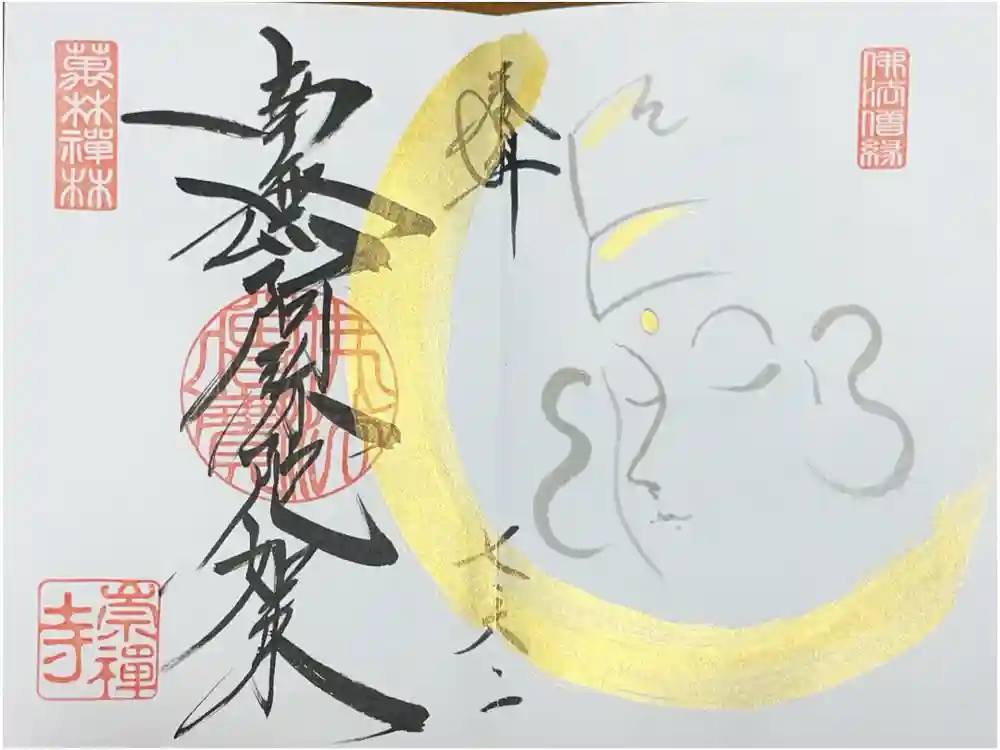 佛法僧縁
奉拝
南無阿弥陀如来
佛法僧寶
崇禪寺